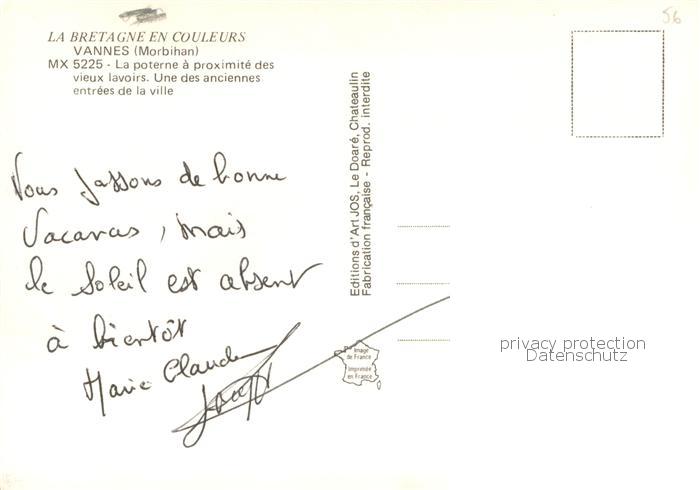 56
LA BRETAGNE EN COULEURS
VANNES (Morbihan)
MX 5225 - La poterne à proximité des
vieux lavoirs. Une des anciennes
entrées de la ville
Nous passons de bonne
Vacances, mais
le soleil est absent
à bientôt
Marie Claude
Editions d'Art JOS, Le Doaré, Chateaulin
Fabrication française - Reprod. interdite
Image
de France
Imprimée
en France
privacy protection
Datenschutz